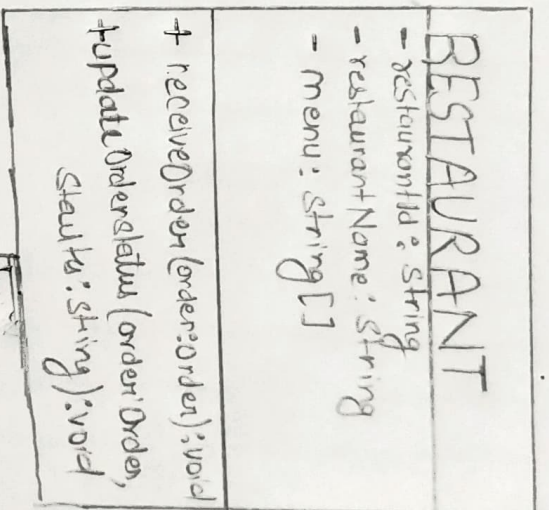 RESTAURANT
- restaurantId: String
- restaurantName: String
- menu: String[]
+ receiveOrder(order:order):void
+updateOrderstatus(order:Order,
staults:sting):void